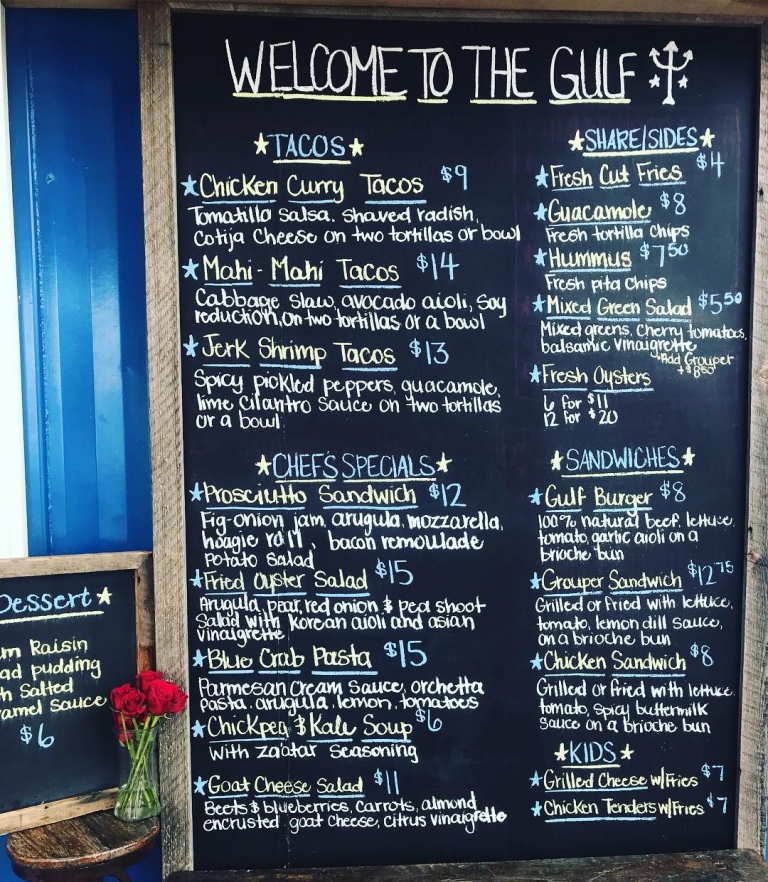 WELCOME TO THE GULF
TACOS
Chicken Curry Tacos $9
Tomatillo Salsa, shaved radish,
Cotija Cheese on two tortillas or bowl
Mahi-Mahi Tacos $14
Cabbage slaw, avocado aioli, soy
reduction, on two tortillas or a bowl
Jerk Shrimp Tacos $13
Spicy pickled peppers, guacamole,
lime cilantro sauce on two tortillas
or a bowl
CHEF'S SPECIALS
Prosciutto Sandwich $12
Fig-onion jam, arugula, mozzarella,
hoagie roll, bacon remoulade
potato salad
Fried Oyster Salad $15
Arugula, pear, red onion & pea shoot
Salad with Korean aioli and asian
vinaigrette
Blue Crab Pasta $15
Parmesan Cream Sauce, orchetta
pasta, arugula, lemon, tomatoes
Chickpea & Kale Soup $6
with za'atar seasoning
Goat Cheese Salad $11
Beets & blueberries, carrots, almond
encrusted goat cheese, citrus vinaigrette
SHARE/SIDES
Fresh Cut Fries $4
Guacamole $8
Fresh tortilla chips
Hummus $7.50
Fresh pita chips
Mixed Green Salad $5.50
Mixed greens, cherry tomatoes,
balsamic vinaigrette
Add Grouper
+$8.50
Fresh Oysters
6 for $11
12 for $20
SANDWICHES
Gulf Burger $8
100% natural beef, lettuce,
tomato, garlic aioli on a
brioche bun
Grouper Sandwich $12.75
Grilled or fried with lettuce,
tomato, lemon dill sauce,
on a brioche bun
Chicken Sandwich $8
Grilled or fried with lettuce,
tomato, spicy buttermilk
sauce on a brioche bun
KIDS
Grilled Cheese w/Fries $7
Chicken Tenders w/Fries $7
Dessert
um Raisin
ad pudding
h Salted
amel sauce
$6